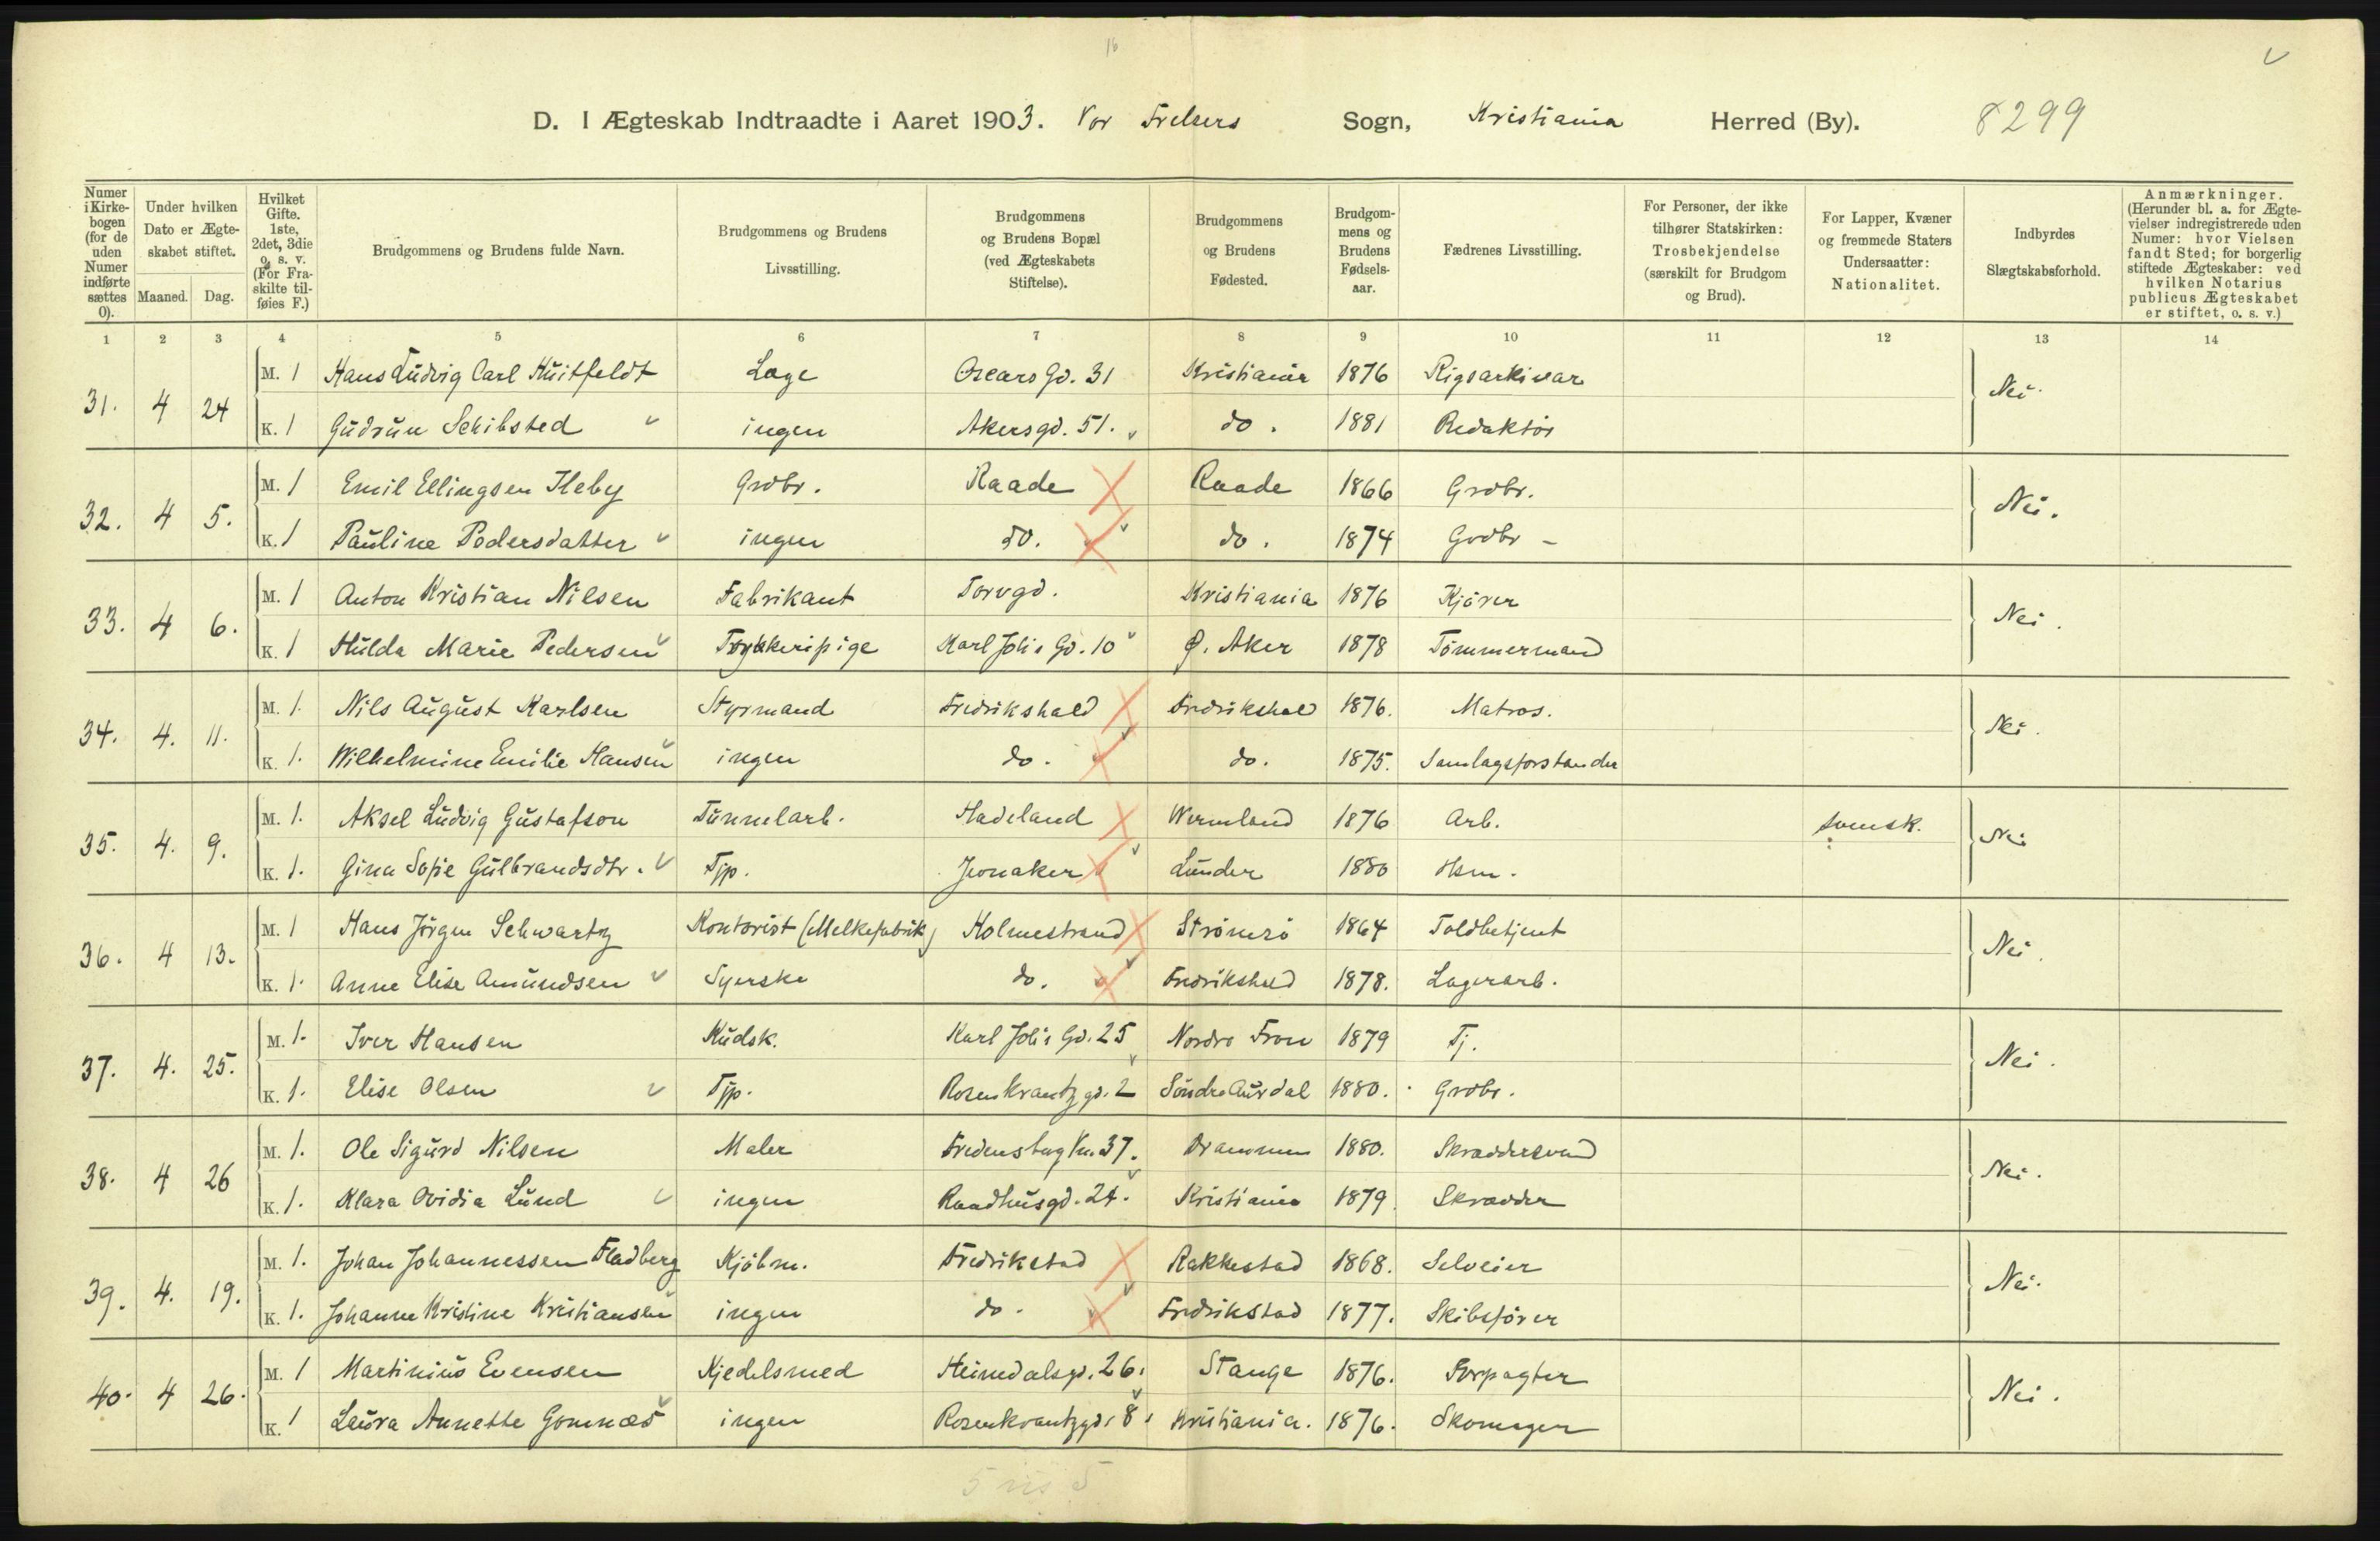 16
D. I Ægteskab Indtraadte i Aaret 1903. Vor Frelsers Sogn, Kristiania Herred (By). 8299
Numer i Kirke-bogen (for de uden Numer indførte sættes 0). | Under hvilken Dato er Ægte-skabet stiftet. Maaned. Dag. | Hvilket Gifte. 1ste, 2det, 3die o. s. v. (For Fra-skilte til-føies F.) | Brudgommens og Brudens fulde Navn. | Brudgommens og Brudens Livsstilling. | Brudgommens og Brudens Bopæl (ved Ægteskabets Stiftelse). | Brudgommens og Brudens Fødested. | Brudgom-mens og Brudens Fødsels-aar. | Fædrenes Livsstilling. | For Personer, der ikke tilhører Statskirken: Trosbekjendelse (særskilt for Brudgom og Brud). | For Lapper, Kvæner og fremmede Staters Undersaatter: Nationalitet. | Indbyrdes Slægtskabsforhold. | Anmærkninger. (Herunder bl. a. for Ægte-vielser indregistrerede uden Numer: hvor Vielsen fandt Sted; for borgerlig stiftede Ægteskaber: ved hvilken Notarius publicus Ægteskabet er stiftet, o. s. v.)
1 2 3 4 5 6 7 8 9 10 11 12 13 14
31. 4 24 M. 1 Hans Ludvig Carl Huitfeldt Læge Oscars Gd. 31 Kristiania 1876 Rigsarkivar Nei.
K. 1 Gudrun Schibsted ingen Akersgd. 51. do. 1881 Redaktør
32. 4 5. M. 1 Emil Ellingsen Heby Grdbr. Raade Raade 1866 Grdbr. Nei.
K. 1 Pauline Pedersdatter ingen do. do. 1874 Grdbr
33. 4 6. M. 1 Anton Kristian Nilsen Fabrikant Torvgd. Kristiania 1876 Kjører Nei.
K. 1 Hulda Marie Pedersen Trykkeripige Karl Joh's Gd. 10 Ø. Aker 1878 Tömmermand
34. 4. 11. M. 1. Nils August Karlsen Styrmand Fredrikshald Fredrikshald 1876. Matros. Nei.
K. 1. Wilhelmine Emilie Hansen ingen do. do. 1875. Samlagsforstander
35. 4. 9. M. 1. Aksel Ludvig Gustafson Tunnelarb. Hadeland Wermland 1876 Arb. svensk. Nei
K. 1. Gina Sofie Gulbrandsdtr. Tjp. Jevnaker Lunder 1880 Hsm.
36. 4 13. M. 1 Hans Jörgen Schwartz Kontorist (Melkefabrik) Holmestrand Strömsö 1864 Toldbetjent Nei.
K. 1. Anne Elise Amundsen Syerske do. Fredrikshald 1878. Lagerarb.
37. 4. 25. M. 1. Iver Hansen Kudsk. Karl Joh's Gd. 25 Nordre Fron 1879 Tj. Nei.
K. 1. Elise Olsen Tjp. Rosenkrantzgd. 2 Söndre Aurdal 1880. Grdbr.
38. 4 26 M. 1. Ole Sigurd Nilsen Maler Fredensborg Vn. 37. Drammen 1880. Skræddersvend Nei.
K. 1. Klara Ovidia Lund ingen Raadhusgd. 24. Kristiania 1879 Skrædder
39. 4. 19. M. 1. Johan Johannessen Fladberg Kjöbm. Fredrikstad Rakkestad 1868. Selveier Nei.
K. 1. Johanne Kristine Kristiansen ingen do. Fredrikstad 1877. Skibsförer
40. 4 26. M. 1 Martinius Evensen Kjedelsmed Heimdalsgd. 26. Stange 1876. Forpagter Nei.
K. 1 Laura Annette Gomnæs ingen Rosenkrantzgd. 8 Kristiania. 1876. Skomager